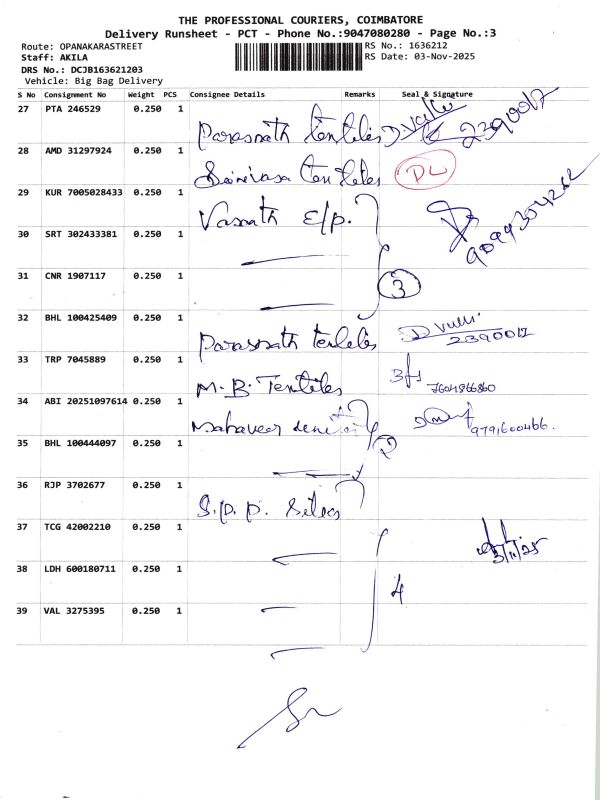 THE PROFESSIONAL COURIERS, COIMBATORE
Delivery Runsheet - PCT - Phone No.:9047080280 - Page No.:3
Route: OPANAKARASTREET
Staff: AKILA
DRS No.: DCJB163621203
Vehicle: Big Bag Delivery
RS No.: 1636212
RS Date: 03-Nov-2025
S No Consignment No Weight PCS Consignee Details Remarks Seal & Signature
27 PTA 246529 0.250 1 Parasnath 2390017
28 AMD 31297924 0.250 1 DL
29 KUR 7005028433 0.250 1 Vasnath
30 SRT 302433381 0.250 1
31 CNR 1907117 0.250 1 3
32 BHL 100425409 0.250 1 Parasnath 2390017
33 TRP 7045889 0.250 1 M.B. Textiles
34 ABI 20251097614 0.250 1 Mahaveer 9791600466.
35 BHL 100444097 0.250 1 2
36 RJP 3702677 0.250 1 S.P.P. Silks
37 TCG 42002210 0.250 1 3/11/25
38 LDH 600180711 0.250 1 4
39 VAL 3275395 0.250 1